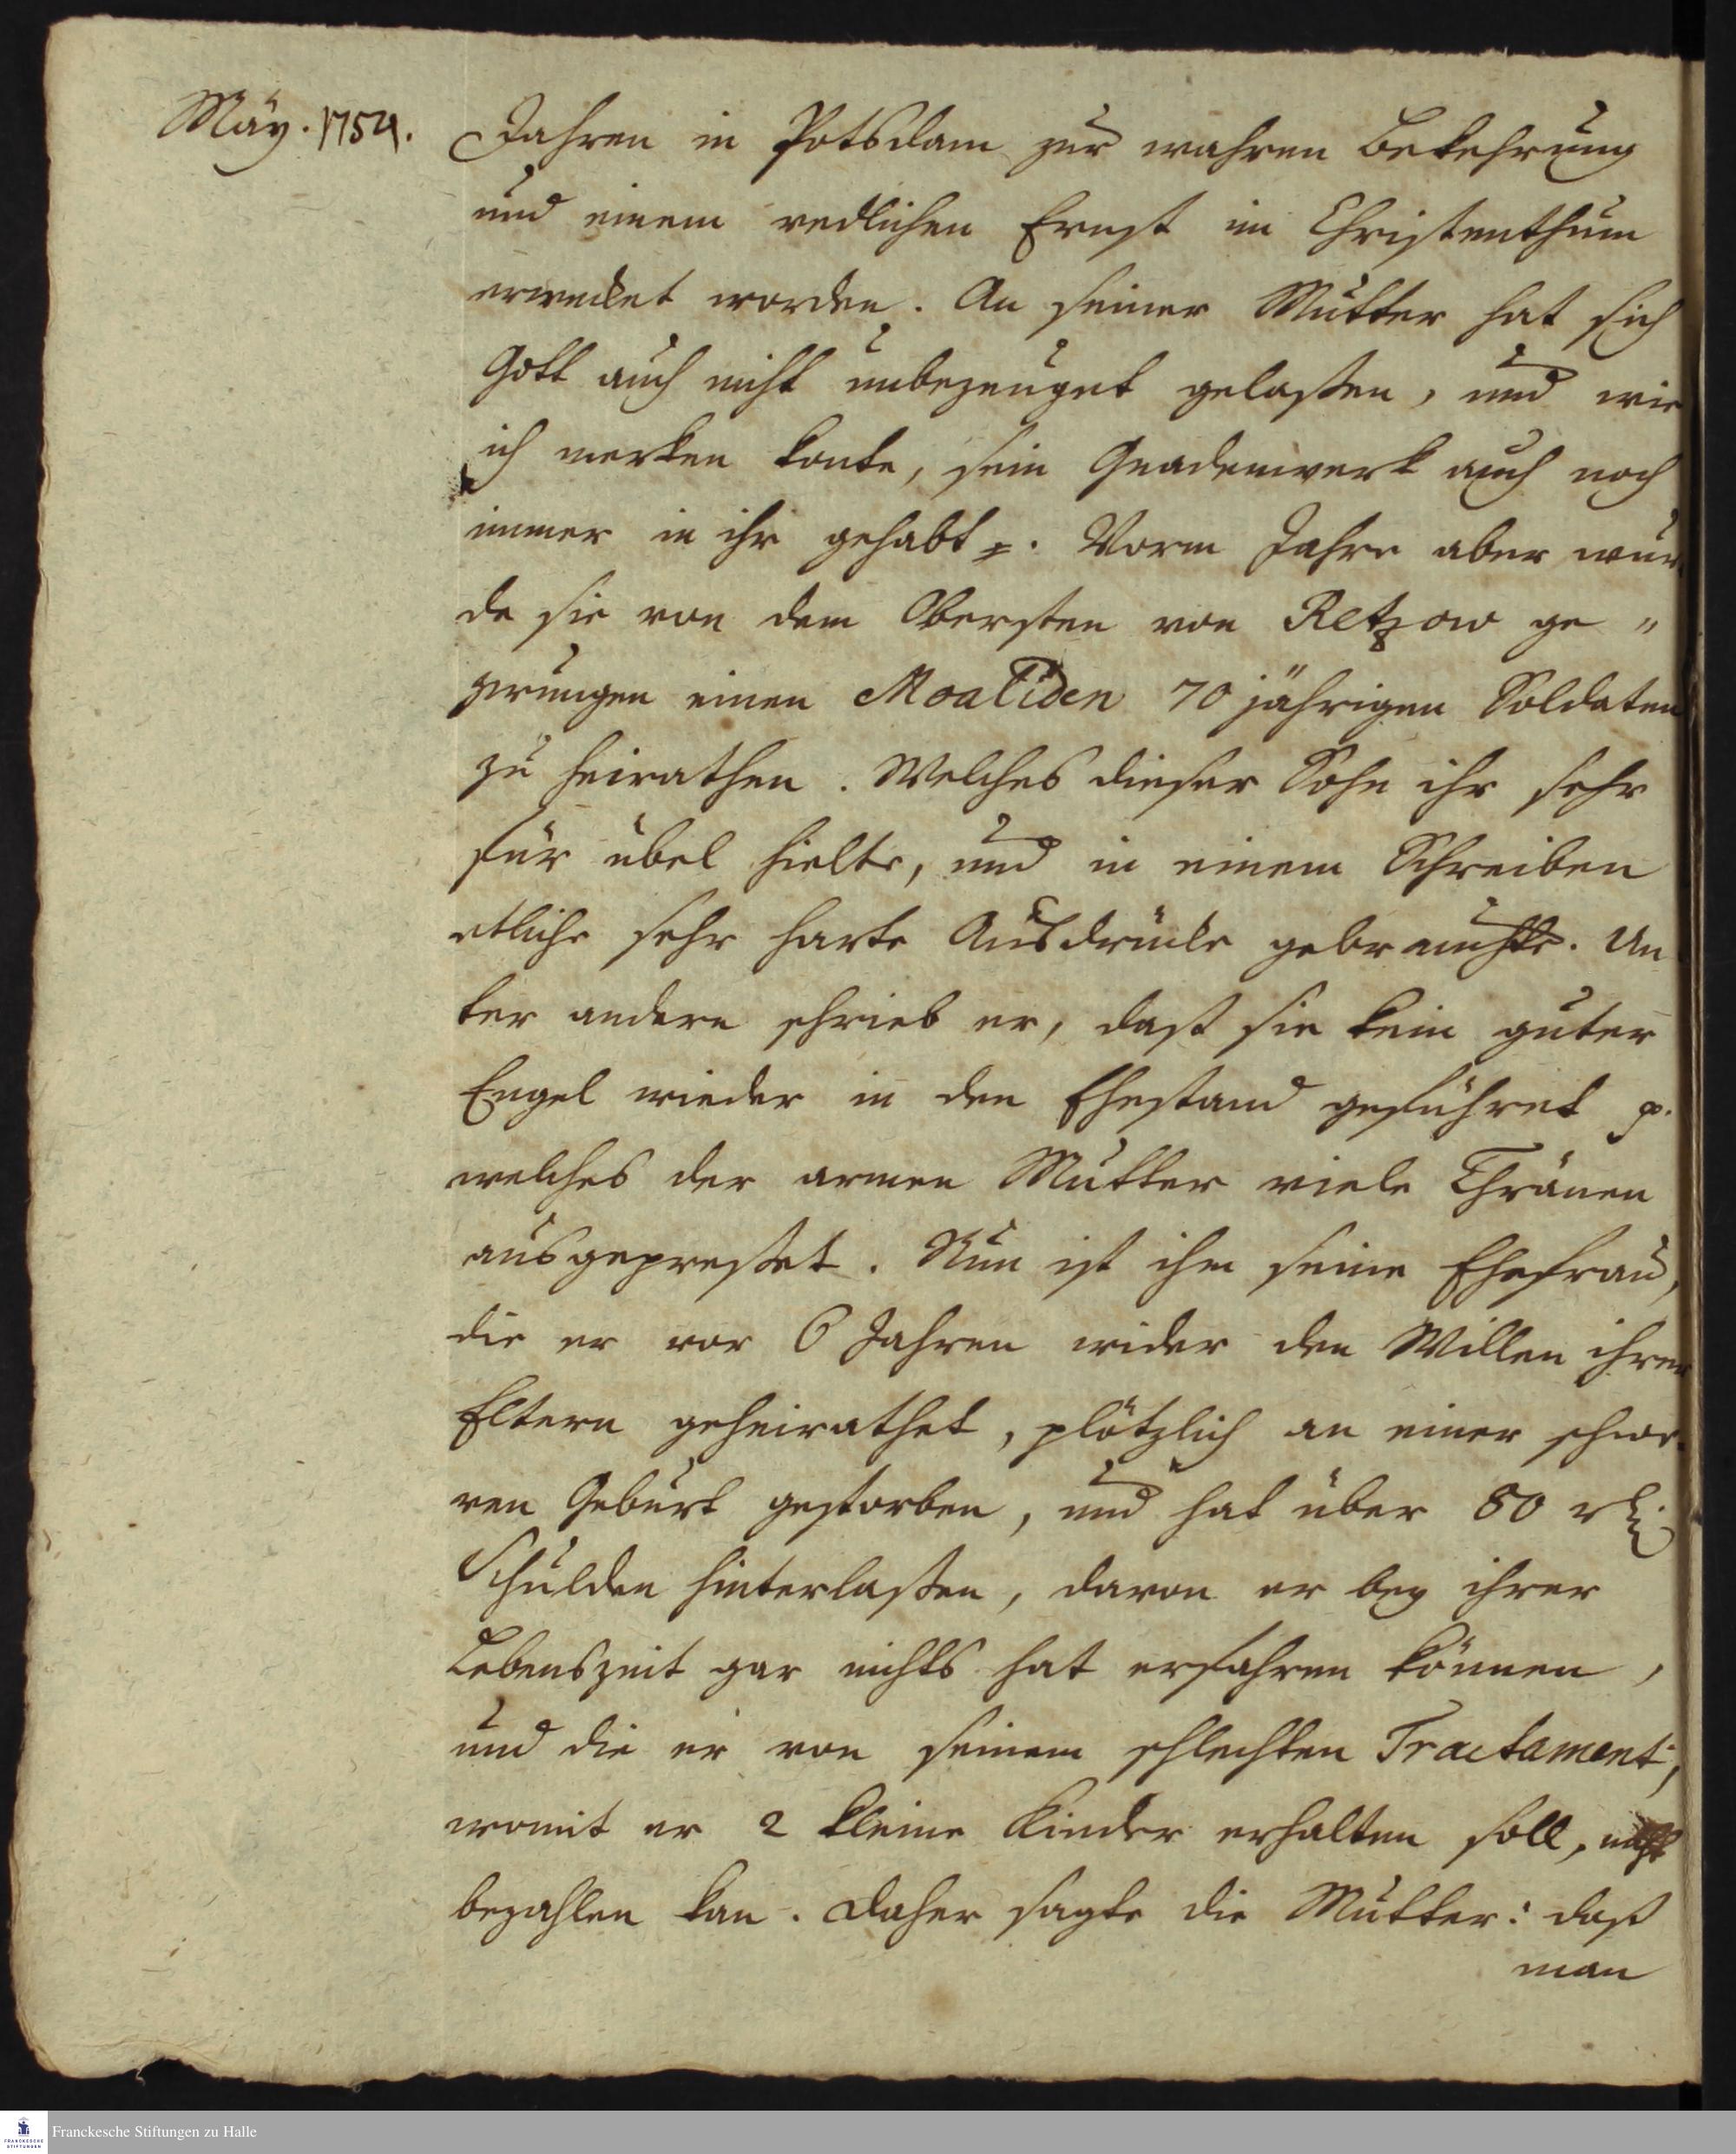 Mäy. 1754.
Jahren in Potsdam zur wahren Bekehrung
und einem redlichen Ernst im Christenthum
erwecket worden. An seiner Mutter hat sich
Gott auch nicht unbezeuget gelaßen, und wie
ich merken konte, sein Gnadenwerk auch noch
immer in ihr gehabt p. Vorm Jahre aber wur-
de sie von dem Obersten von Retzow ge "
zwungen einen 70 jährigen Soldaten
zu heirathen. Welches dieser Sohn ihr sehr
für übel hielte, und in einem Schreiben
etliche sehr harte Ausdrücke gebrauchte. Un
ter andern schrieb er, daß sie kein guter
Engel wieder in den Ehestand geführet p.
welches der armen Mutter viele Thränen
ausgepreßet. Nun ist ihm seine Ehefrau,
die er vor 6 Jahren wider den Willen ihrer
Eltern geheirathet, plötzlich an einer schwe-
ren Geburt gestorben, und hat über 80 rthl.
Schulden hinterlaßen, davon er bey ihrer
Lebenszeit gar nichts hat erfahren können,
und die er von seinem schlechten Tractament,
womit er 2 kleine Kinder erhalten soll, nicht
bezahlen kan. Daher sagte die Mutter: daß
man
Franckesche Stiftungen zu Halle
FRANCKESCHE
STIFTUNGEN